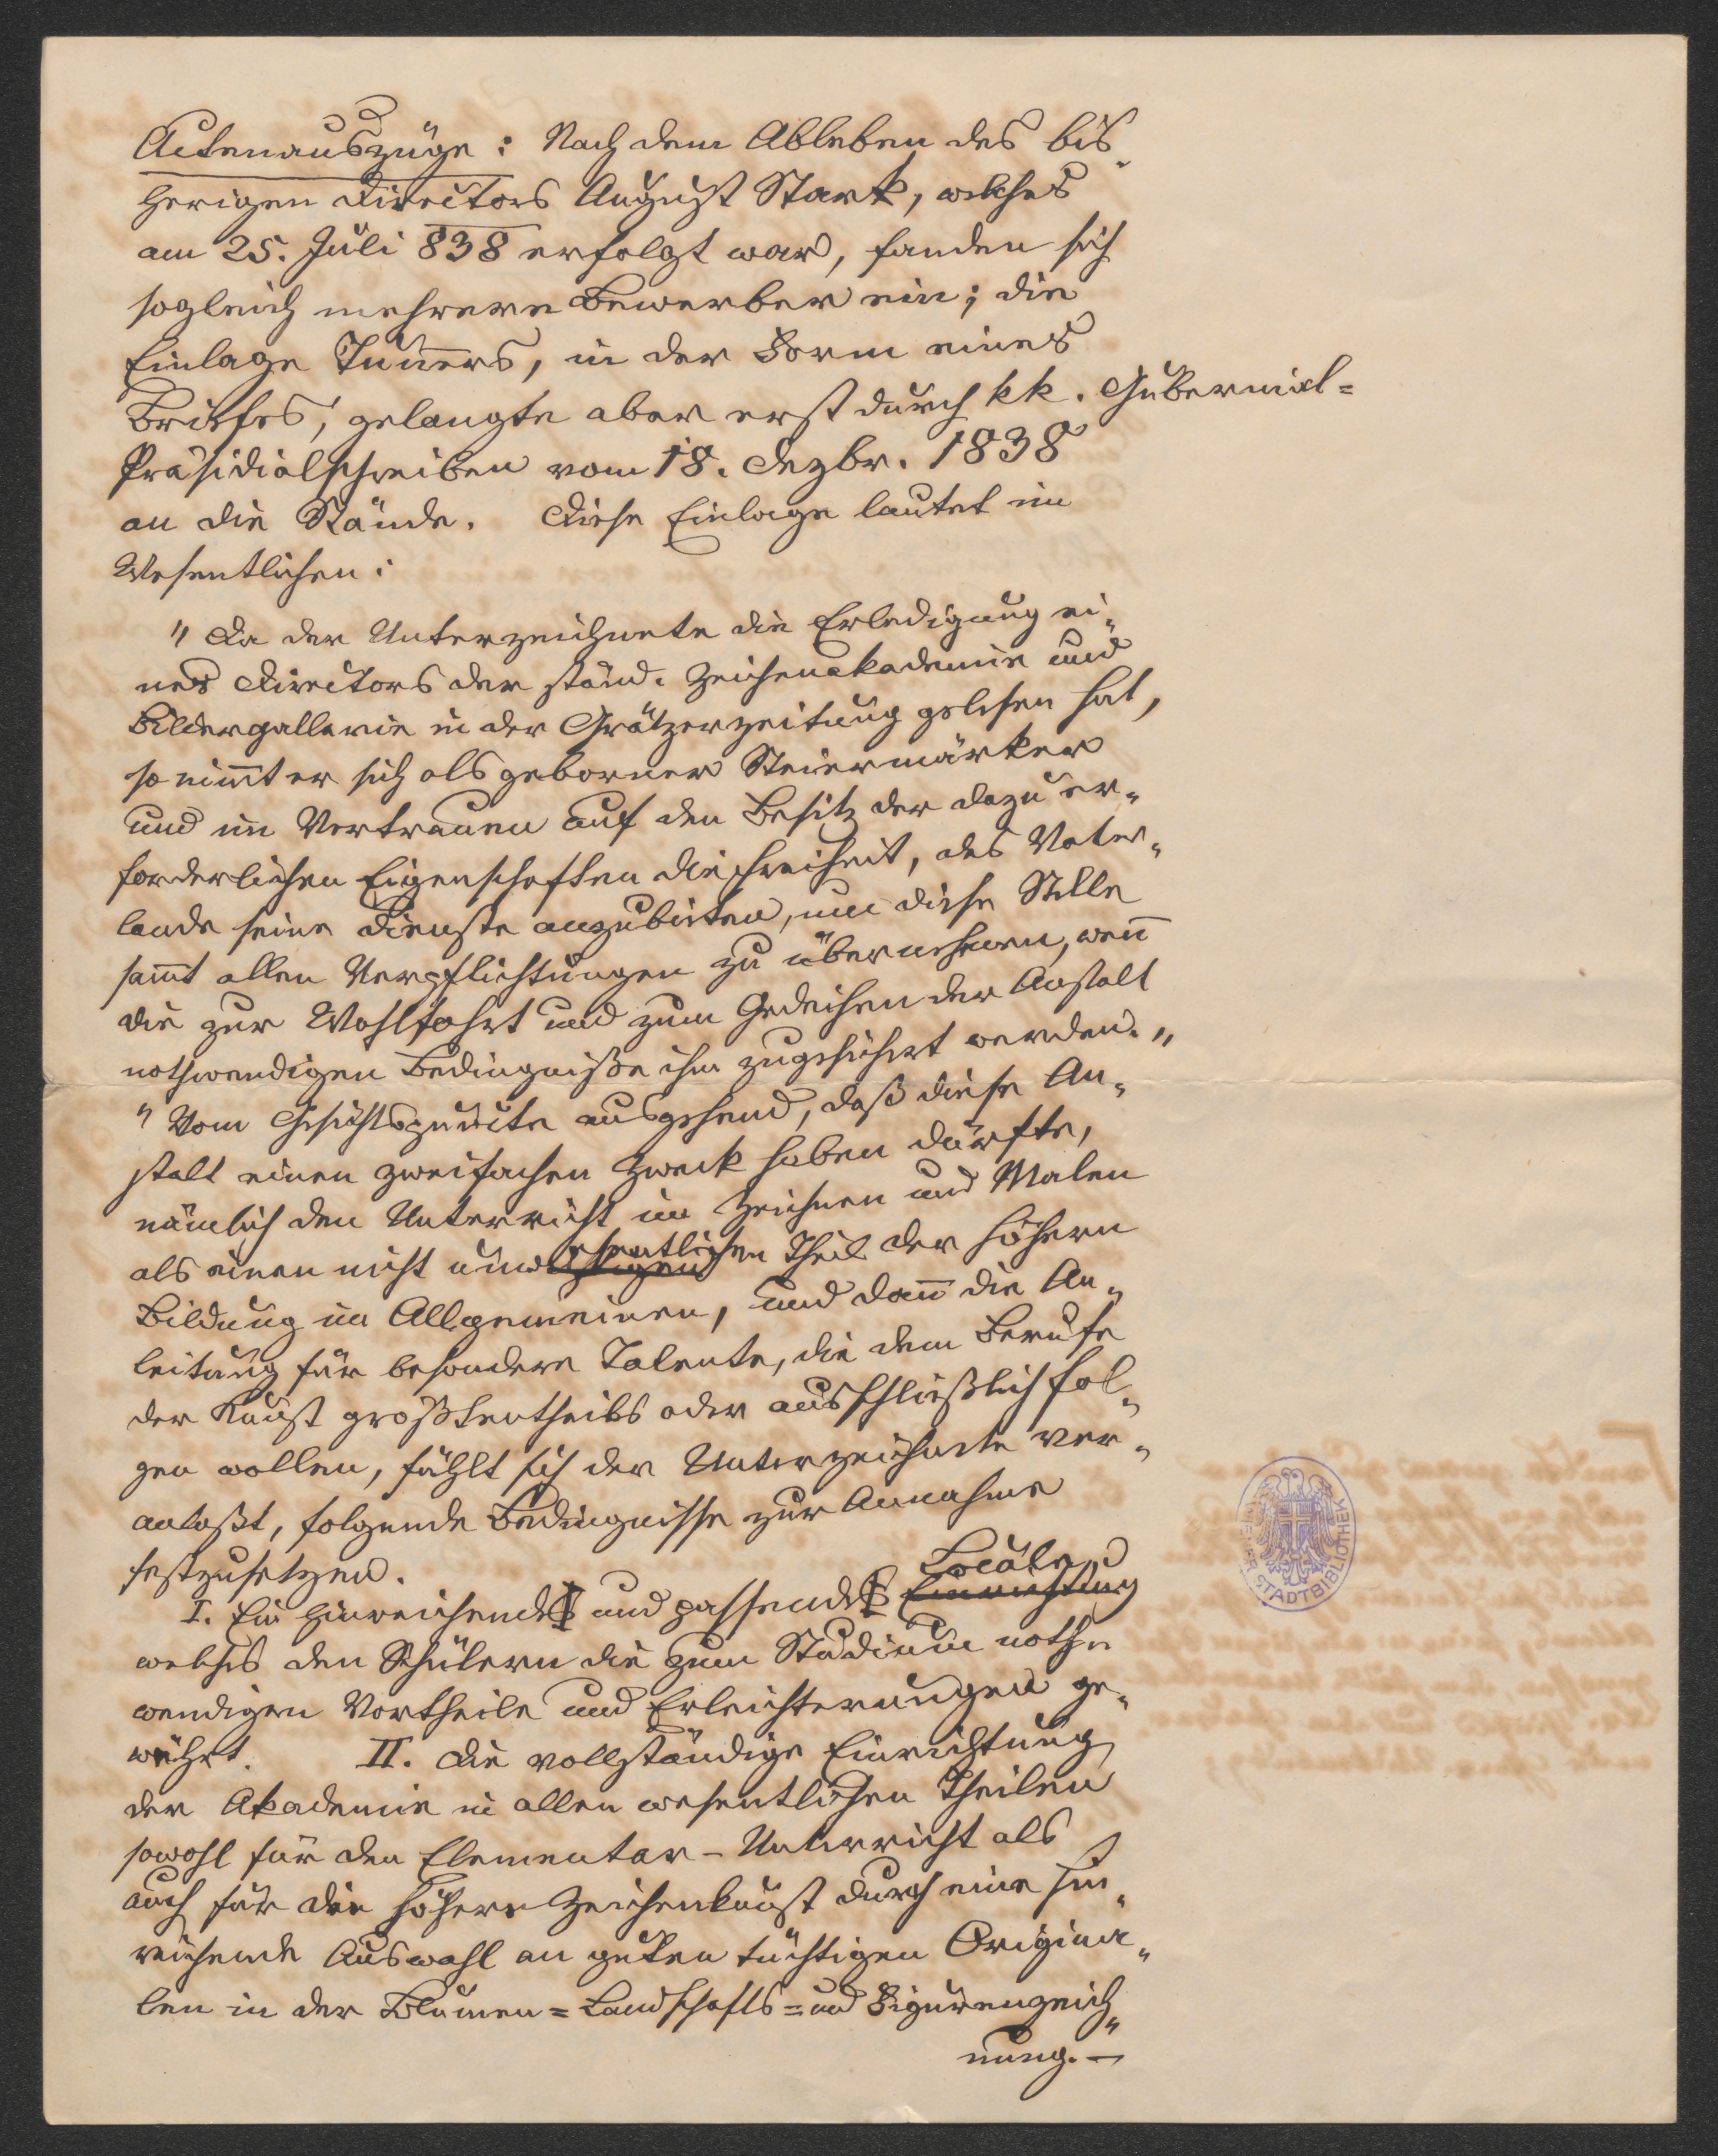 Actenauszüge: Nach dem Ableben des bis„
herigen Directors August Stark, welches
am 25. Juli 838 erfolgt war, fanden sich
sogleich mehrere Bewerber ein; die
Einlage Tun̅ers, in der Form eines
Briefes, gelangte aber erst durch kk. Gubernial=
Präsidialschreiben vom 18. Dezbr. 1838
an die Stände. Diese Einlage lautet im
Wesentlichen:
"Da der Unterzeichnete die Erledigung ei„
nes Directors der ständ. Zeichenakademie und
Bildergallerie in der Grätzerzeitung gelesen hat,
so nim̅t er sich als geborner Steiermärker
und im Vertrauen auf den Besitz der dazu er„
forderlichen Eigenschaften die Freiheit, des Vater„
lande seine Dienste anzubieten, um diese Stelle
sam̅t allen Verpflichtungen zu übernehmen, wen̅
die zur Wohlfahrt und zum Gedeihen der Anstalt
nothwendigen Bedingniße ihm zugesichert werden."
"Vom Gesichtspuncte ausgehend, daß diese An„
stalt einen zweifachen Zweck haben dürfte,
nämlich den Unterricht im Zeichnen und Malen
als einen nicht unwesentlichen Theil der höhern
Bildung im Allgemeinen, und dan̅ die An„
leitung für besondere Talente, die dem Berufe
der Kunst größtentheils oder ausschließlich fol„
gen wollen, fühlt sich der Unterzeichnete ver„
anlaßt, folgende Bedingnisse zur Annahme
festzusetzen.
Locale,
I. Ein hinreichendes und passendes Einrichtung
welches den Schülern die zum Studium noth„
wendigen Vortheile und Erleichterungen ge„
währt. II. Die vollständige Einrichtung
der Akademie in allen wesentlichen Theilen
sowohl für den Elementar-Unterricht als
auch für die höhere Zeichenkunst durch eine hin„
reichende Auswahl an guten tüchtigen Origina„
len in der Blumen=Landschafts=und Figurenzeich„
nung.—
WIENER STADTBIBLIOTHEK